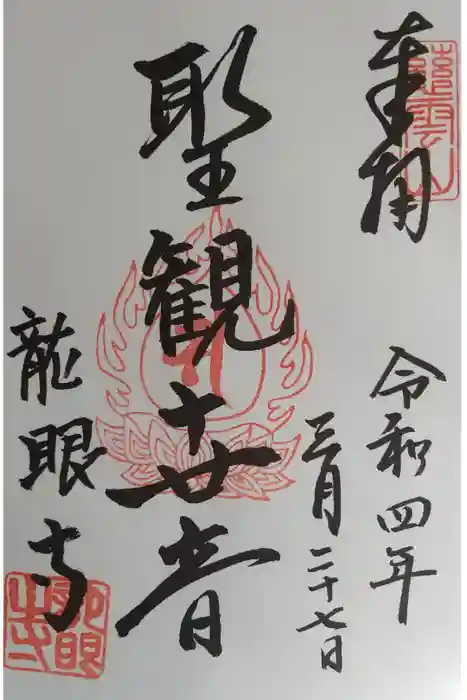 奉拝
慈雲山
令和四年
三月二十七日
聖観世音
龍眼寺